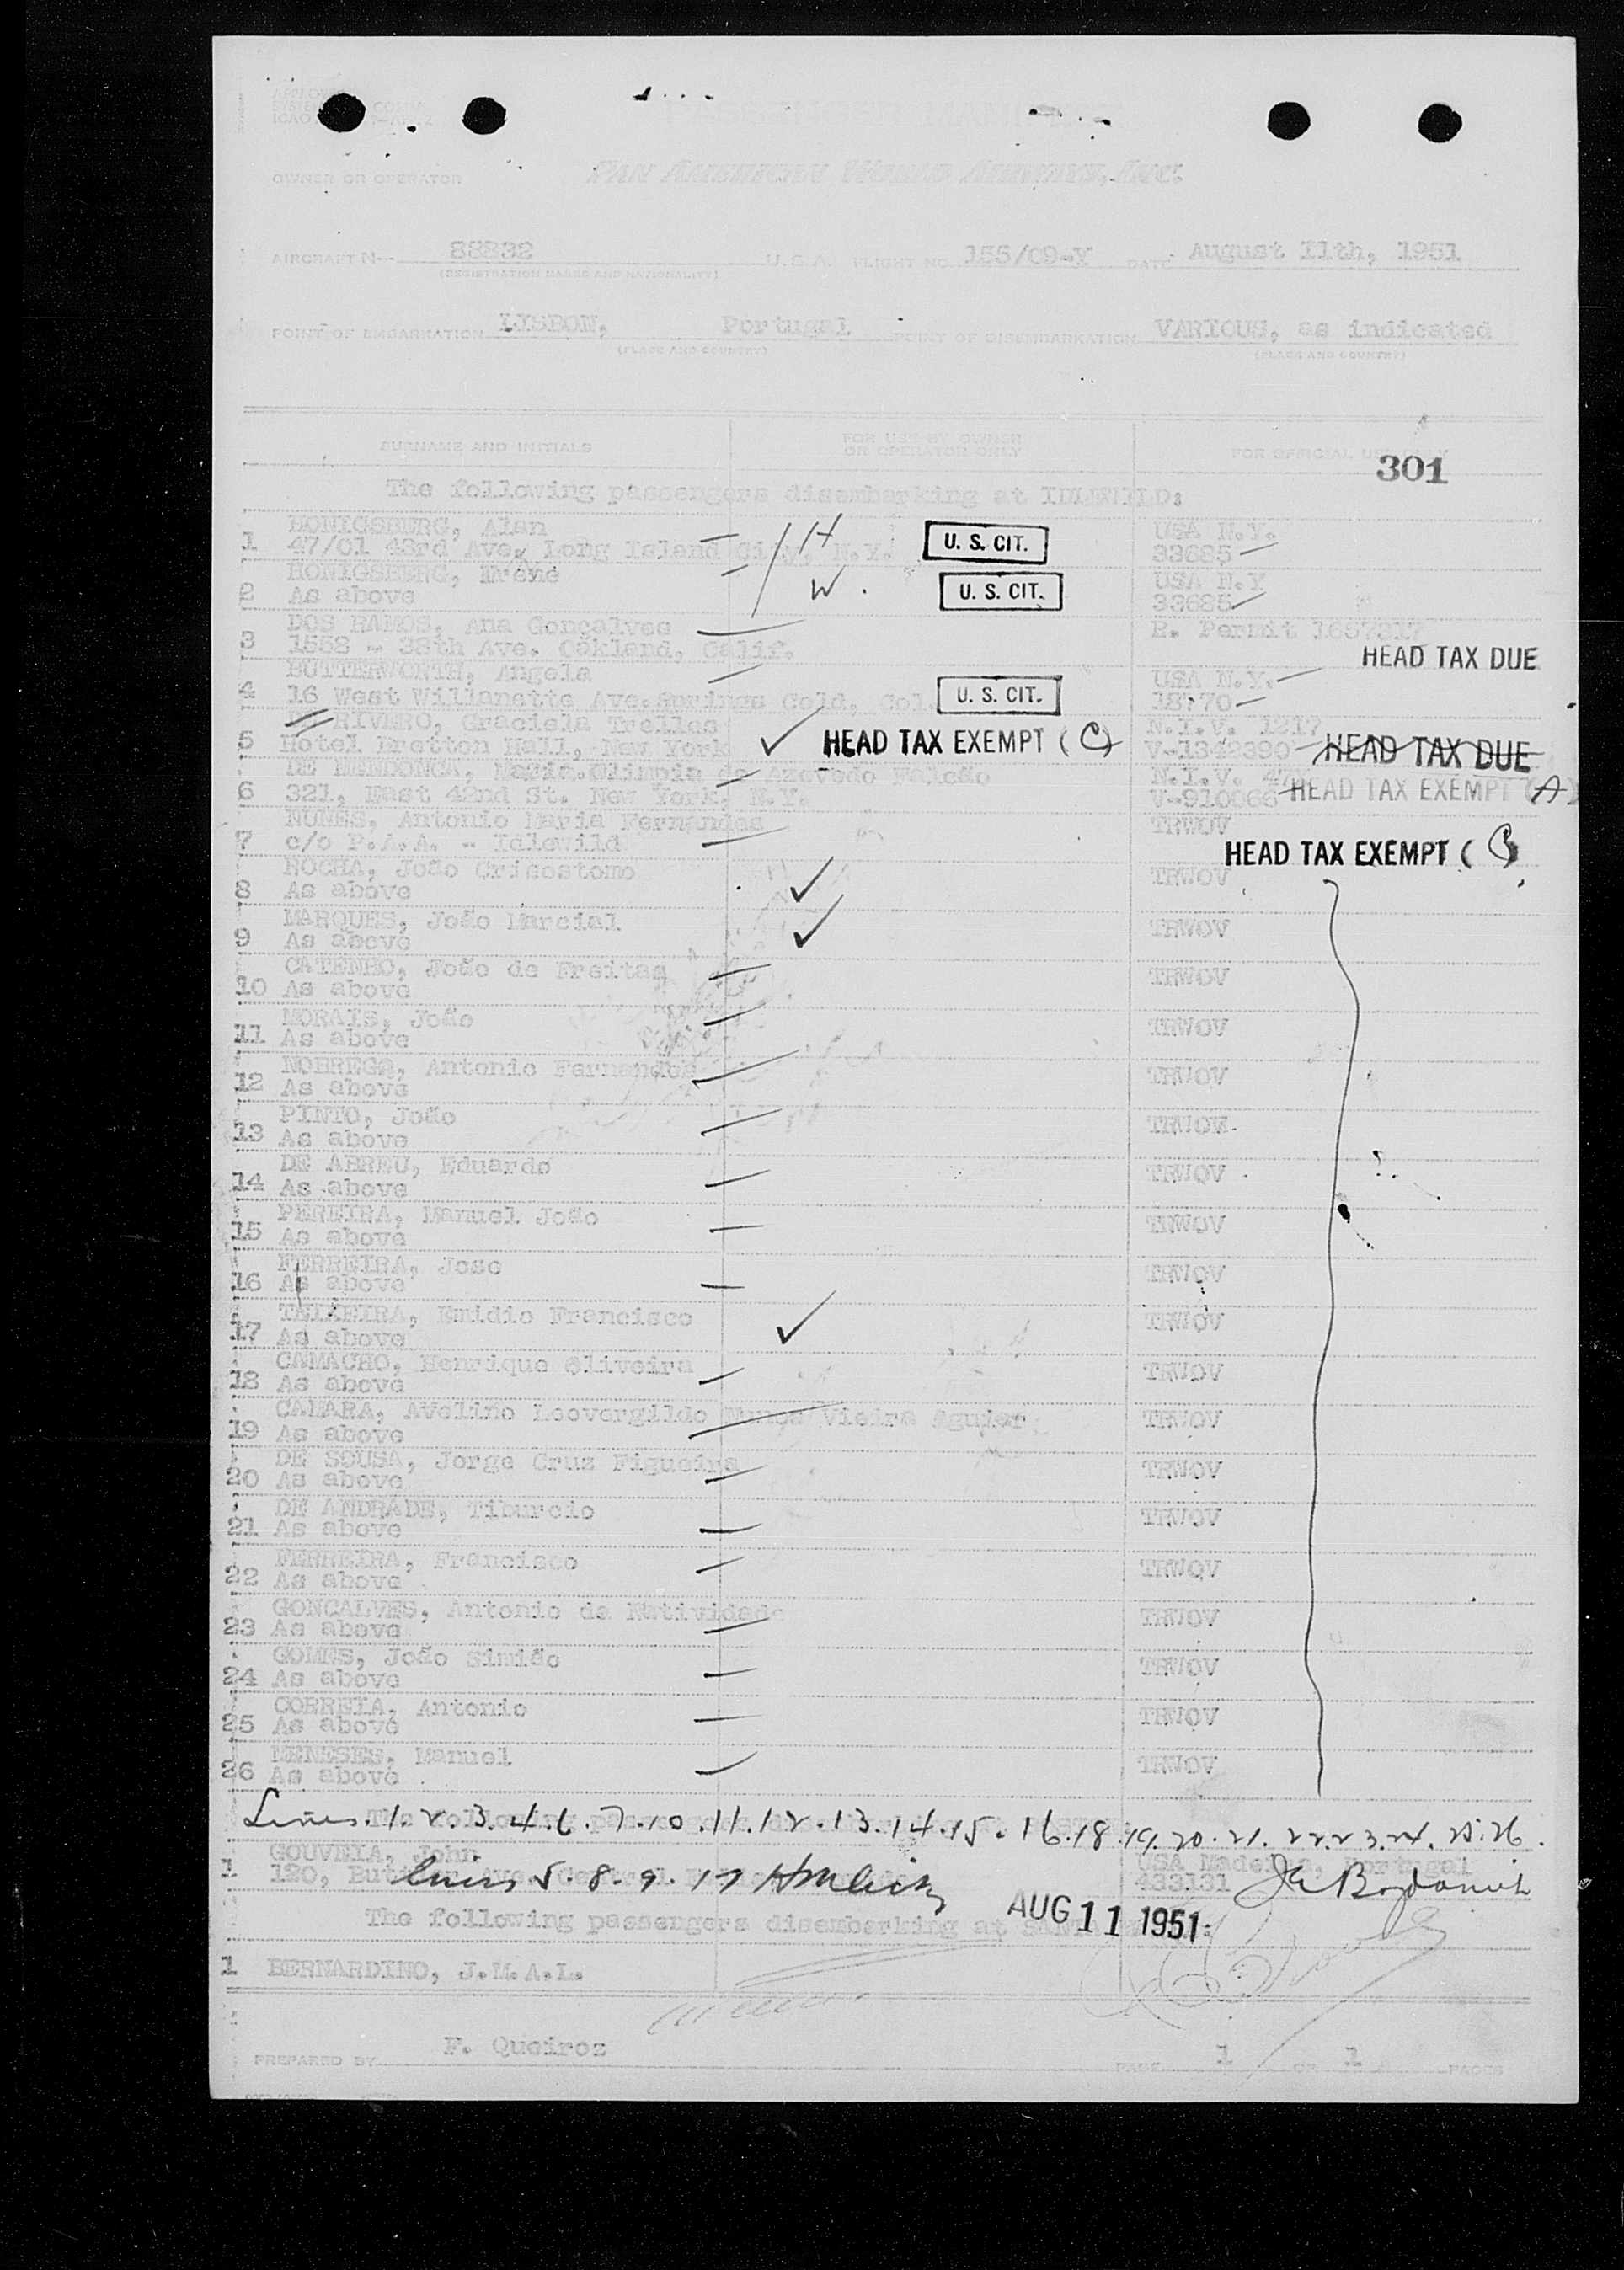 PASSENGER MANIFEST
OWNER OR OPERATOR PAN AMERICAN WORLD AIRWAYS, INC.
AIRCRAFT N- 88832 U.S.A. FLIGHT NO. 155/09-Y DATE August 11th, 1951
(REGISTRATION MARKS AND NATIONALITY)
POINT OF EMBARKATION LISBON, Portugal POINT OF DISEMBARKATION VARIOUS, as indicated
(PLACE AND COUNTRY) (PLACE AND COUNTRY)
SURNAME AND INITIALS FOR USE BY OWNER OR OPERATOR ONLY FOR OFFICIAL USE ONLY
301
The following passengers disembarking at IDLEWILD:
HONIGSBERG, Alan H U. S. CIT. USA N.Y.
1 47/01 43rd Ave. Long Island City, N.Y. 33685
HONIGSBERG, Irene W. U. S. CIT. USA N.Y
2 As above 33685
DOS RAMOS, Ana Gonçalves R. Permit 1657317
3 1558 - 38th Ave. Oakland, Calif. HEAD TAX DUE
BUTTERWORTH, Angela USA N.Y.
4 16 West Willamette Ave. Springs Cold, Col. U. S. CIT. 18770
RIVERO, Graciela Trelles N.I.V. 1217
5 Hotel Bretton Hall, New York HEAD TAX EXEMPT (C) V-1342390 HEAD TAX DUE
DE MENDONCA, Maria Olimpia de Azevedo Falcão N.I.V.
6 321, East 42nd St. New York, N.Y. V-910066 HEAD TAX EXEMPT (A)
NUNES, Antonio Maria Fernandes TRWOV
7 c/o P.A.A. - Idlewild HEAD TAX EXEMPT (
ROCHA, João Crisostomo TRWOV
8 As above
MARQUES, João Marcial TRWOV
9 As above
CATENHO, João de Freitas TRWOV
10 As above
MORAIS, João TRWOV
11 As above
NOBREGA, Antonio Fernandes TRWOV
12 As above
PINTO, João TRWOV
13 As above
DE ABREU, Eduardo TRWOV
14 As above
PEREIRA, Manuel João TRWOV
15 As above
FERREIRA, Jose TRWOV
16 As above
TEIXEIRA, Emidio Francisco TRWOV
17 As above
CAMACHO, Henrique Oliveira TRWOV
18 As above
CAMARA, Avelino Leovergildo Nunes Vieira Aguiar TRWOV
19 As above
DE SOUSA, Jorge Cruz Figueira TRWOV
20 As above
DE ANDRADE, Tiburcio TRWOV
21 As above
FERREIRA, Francisco TRWOV
22 As above
GONCALVES, Antonio da Natividade TRWOV
23 As above
GOMES, João Simião TRWOV
24 As above
CORREIA, Antonio TRWOV
25 As above
MENESES, Manuel TRWOV
26 As above
The following passengers
Lines. 1. 2. 3. 4. 6. 7. 10. 11. 12. 13. 14. 15. 16. 18. 19. 20. 21. 22. 23. 24. 25. 26.
GOUVEIA, John USA Madeira, Portugal
1 120, Ave. 433131
Lines 5. 8. 9. 17
AUG 11 1951
The following passengers disembarking at
1 BERNARDINO, J.M.A.L.
PREPARED BY F. Queiroz PAGE 1 OF 1 PAGES